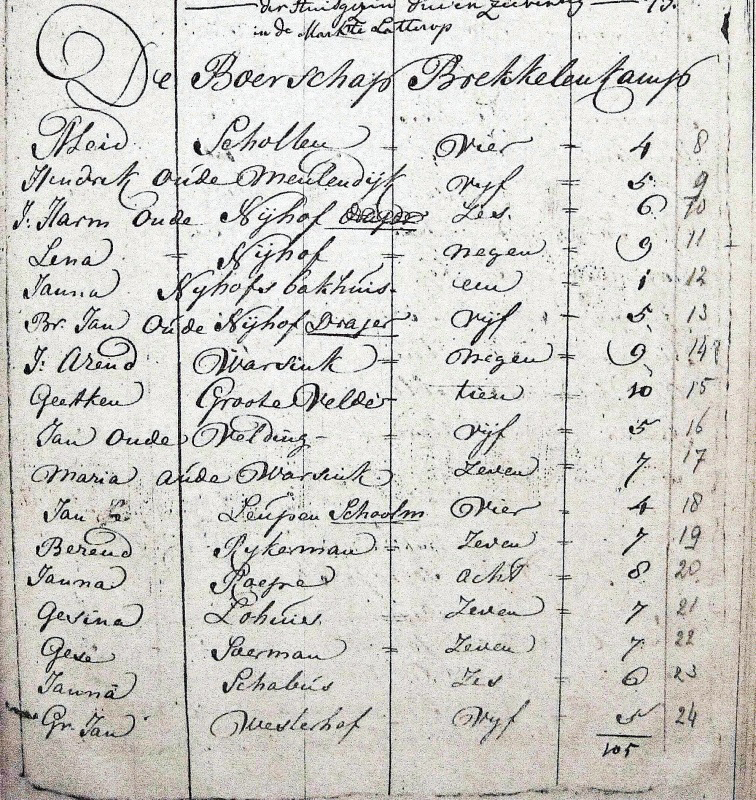 der Huisgezin
in de Markte Lattrop
De Boerschap Brekkelenkamp
Aleid Scholten = Vier = 4 8
Hendrik oude Meulendijk Vyf = 5 9
J: Harm Oude Nijhof Zes. = 6 10
Lena = Nijhof = negen = 9 11
Janna Nijhofs bakhuis. een = 1 12
Br. Jan Oude Nijhof Drajer Vijf = 5 13
J: Arend Warsink = negen = 9 14
Geetken Groote Velde = tien = 10 15
Jan oude Velding Vijf = 5 16
Maria oude Warsink Zeven = 7 17
Jan Leupen Schoolm Vier = 4 18
Berend Rykerman = Zeven = 7 19
Janna acht = 8 20
Gesina Lohuies. Zeven = 7 21
Gese Soerman = Zeven = 7 22
Janna Schabus Zes = 6 23
Gr. Jan Westerhof Vyf 5 24
105